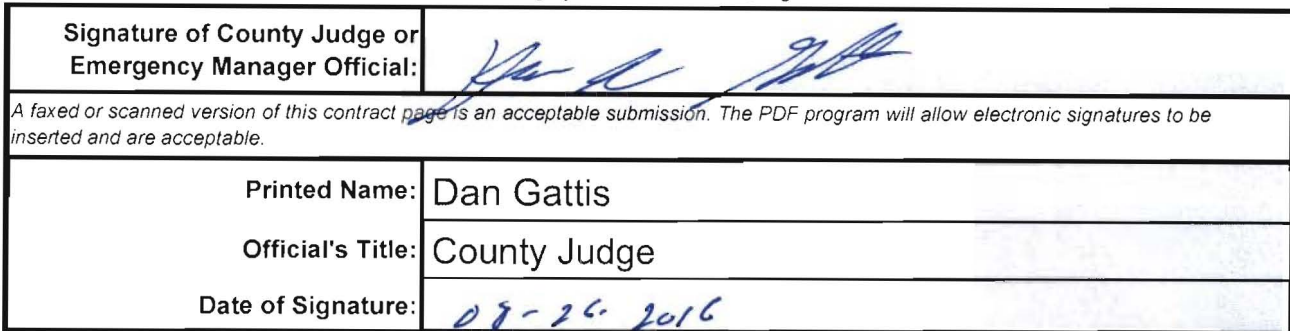 Signature of County Judge or
Emergency Manager Official:
A faxed or scanned version of this contract page is an acceptable submission. The PDF program will allow electronic signatures to be
inserted and are acceptable.
Printed Name: Dan Gattis
Official's Title: County Judge
Date of Signature: 08-26. 2016